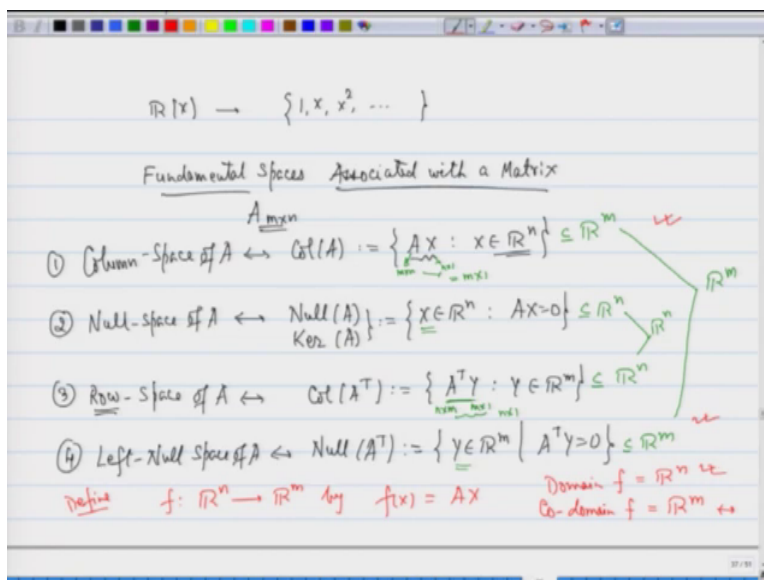 B I
ℝ(x) → {1, x, x², ... }
Fundamental Spaces Associated with a Matrix
A m×n
① Column-Space of A ↔ Col(A) := { AX : X ∈ ℝⁿ } ⊆ ℝᵐ
m×n n×1 = m×1
ℝᵐ
② Null-Space of A ↔ Null(A) Ker(A) } := { X ∈ ℝⁿ : AX=0 } ⊆ ℝⁿ
ℝⁿ
③ Row-Space of A ↔ Col(Aᵀ) := { AᵀY : Y ∈ ℝᵐ } ⊆ ℝⁿ
n×m m×1 n×1
④ Left-Null Space of A ↔ Null(Aᵀ) := { Y ∈ ℝᵐ | AᵀY=0 } ⊆ ℝᵐ
Define f: ℝⁿ → ℝᵐ by f(x) = AX
Domain f = ℝⁿ
Co-domain f = ℝᵐ ↔